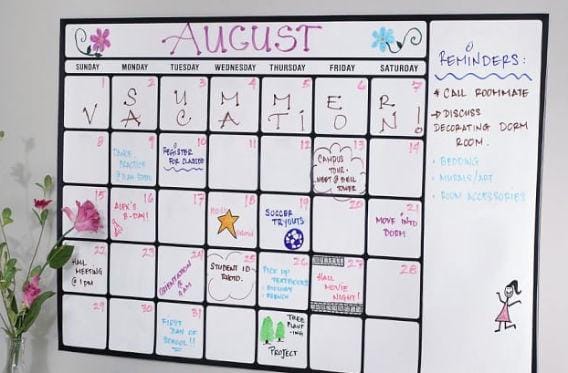 AUGUST
SUNDAY MONDAY TUESDAY WEDNESDAY THURSDAY FRIDAY SATURDAY
1 2 3 4 5 6 7
S U M M E R
V A C A T I O N!
8 9 10 11 12 13 14
DANCE
PRACTICE
REGISTER
FOR CLASSES
CAMPUS
TOUR -
MEET @ BELL
TOWER
15 16 17 18 19 20 21
ALEX'S
B-DAY!
SOCCER
TRYOUTS
MOVE INTO
DORM
22 23 24 25 26 27 28
HALL
MEETING
@ 1 PM
ORIENTATION @
9AM
STUDENT ID
PHOTO.
PICK UP
TEXTBOOKS
HALL
MOVIE
NIGHT!
29 30 31
FIRST
DAY OF
SCHOOL!!
TREE
PLANT
-ING
PROJECT
REMINDERS:
* CALL ROOMMATE
→ DISCUSS
DECORATING DORM
ROOM.
• BEDDING
• MURALS/ART
• ROOM ACCESSORIES